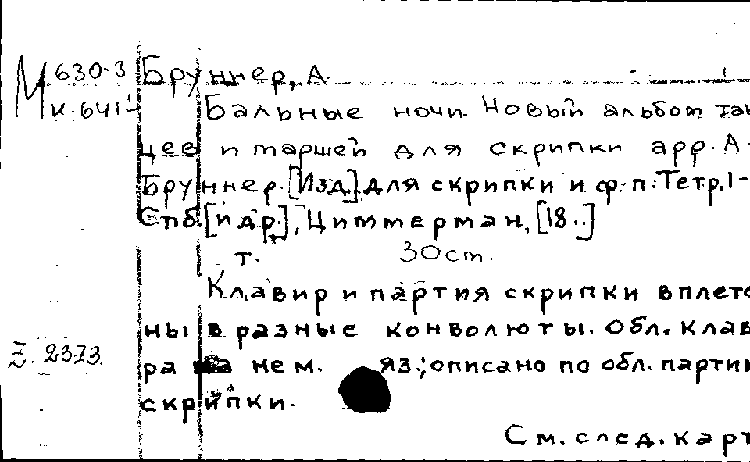 М 630-3 Бруннер, А.
К-641- Бальные ночи. Новый альбом тан
цев и маршей для скрипки арр. А.
Бруннер. [Изд.] для скрипки и ф-п. Тетр. 1-
Спб. [и др.], Циммерман, [18..]
т. 30 cm.
Клавир и партия скрипки вплете
ны в разные конволюты. Обл. клави
ра на нем. яз; описано по обл. партии
Z. 2373.
скрипки.
См. след. карт